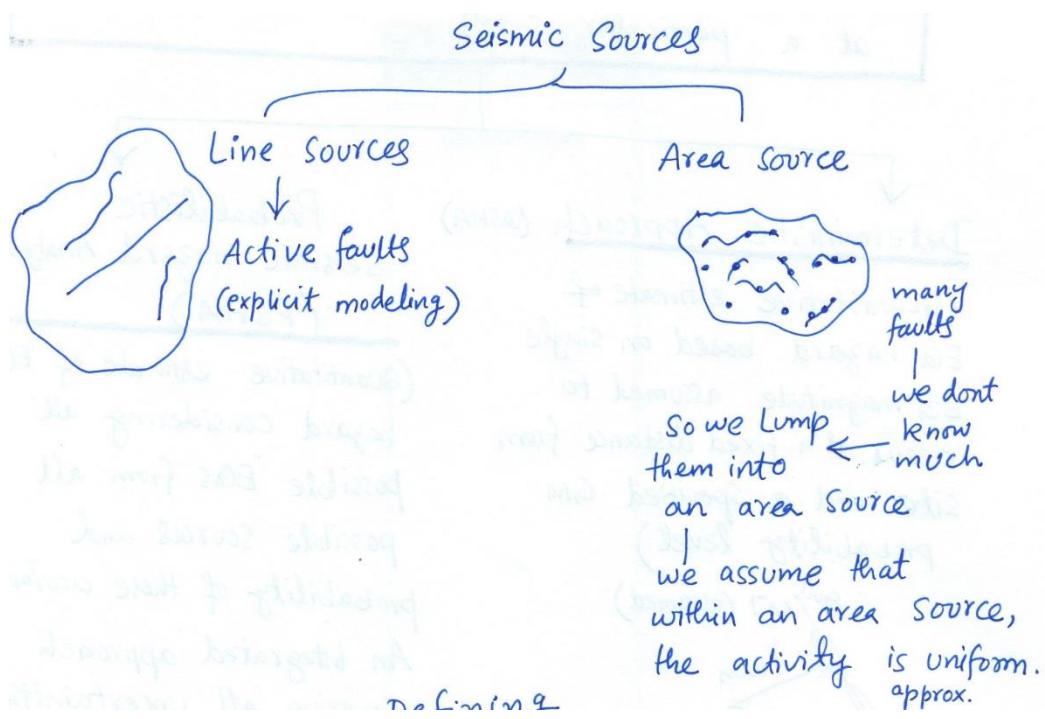 Seismic Sources
Line Sources
Active faults
(explicit modeling)
Area source
many
faults
we dont
know
much
So we Lump
them into
an area source
we assume that
within an area source,
the activity is uniform.
approx.
Defining